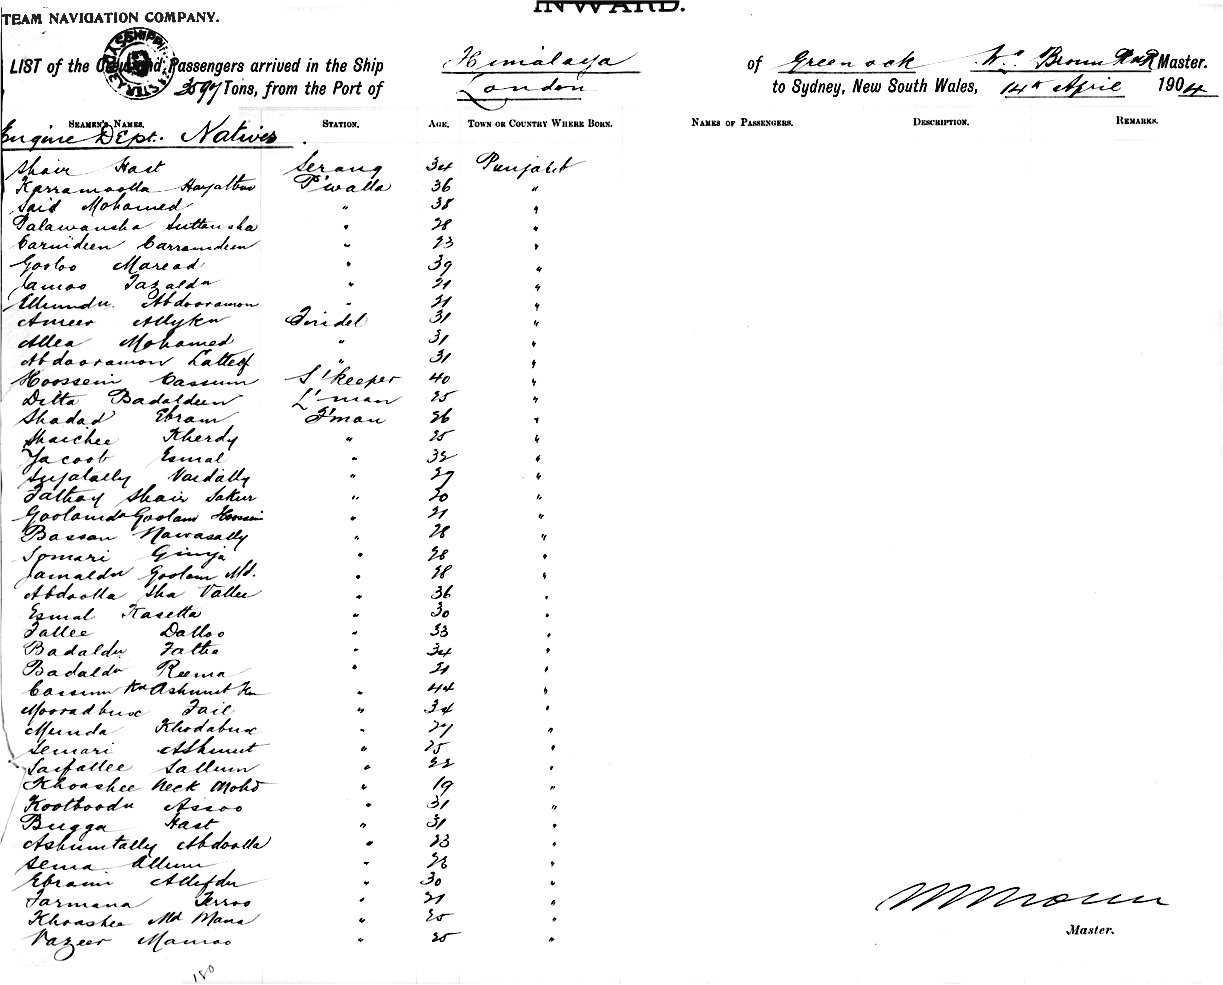 INWARD.
TEAM NAVIGATION COMPANY.
LIST of the Crew and Passengers arrived in the Ship Himalaya of Greenock Wm Brown RNR Master.
3597 Tons, from the Port of London to Sydney, New South Wales, 14th April 1904
SEAMEN'S NAMES. STATION. AGE. TOWN OR COUNTRY WHERE BORN. NAMES OF PASSENGERS. DESCRIPTION. REMARKS.
Engine Dept. Natives.
Shair Hast Serang 34 Punjaub
Karramoolla P'walla 36 "
Said Mohamed " 38 "
Palawansha Suttansha " 28 "
Carmideen Carramdeen " 23 "
Gooloo Maread " 39 "
Jamoo Fazaldn " 21 "
Abdooramon " 21 "
Ameer Allykn Tindel 31 "
Allea Mohamed " 31 "
Abdooramon Latteef " 31 "
Hoossein Cassum S'keeper 40 "
Ditta Badaldeen L'man 25 "
Shadad Ebram F'man 26 "
Shaichee Kherdy " 25 "
Jacoob Esmal " 32 "
Sujatally Vardally " 27 "
Fathay Shair Sakur " 20 "
Goolamdn Goolam Hossein " 21 "
Bassan Nawasally " 28 "
Somari Gimja " 28 "
Jamaldn Goolam Md. " 28 "
Abdoolla Sha Vallee " 36 "
Esmal Kasetta " 30 "
Fallee Dalloo " 33 "
Badaldn Fatta " 34 "
Badaldn Reema " 21 "
Cassum Kn Ashmut Kn " 44 "
Mooradbux Fail " 34 "
Munda Khodabux " 27 "
Semari Ashmut " 25 "
Saifallee Sallum " 22 "
Khoashee Neck Mohd " 19 "
Kootboodn Assoo " 31 "
Bugga Hast " 31 "
Ashumtally Abdoolla " 23 "
Sema Allum " 22 "
Ebraim Allifdn " 30 "
Farmana Ferroo " 21 "
Khoashee Md Mana " 25 "
Vazeer Mamoo " 25 "
WBrown
Master.
180